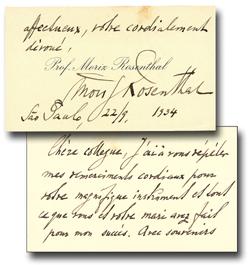 affectueux, votre cordialement
dévoué,
Prof. Moriz Rosenthal
Moriz Rosenthal
São Paulo, 22/9, 1934
Chère collegue, J'ai à vous répéter
mes remerciments cordiaux pour
votre magnifique instrument et tout
ce que vous et votre mari avez fait
pour mon succés. Avec souvenirs